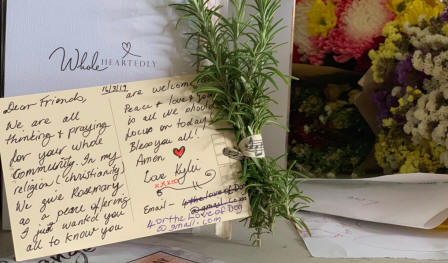 Whole HEARTEDLY
16/3/19
Dear Friends,
We are all
thinking & praying
for your whole
community. In my
religion (christianity)
We give Rosemary
as a peace offering
I just wanted you
all to know you
are welcome
Peace & love
is all we should
focus on today
Bless you all!
Amen
Love Kylie
xxxxo
Email - 4theloveofDog
@gmail.com
4ortheLoveofDog
@gmail.com